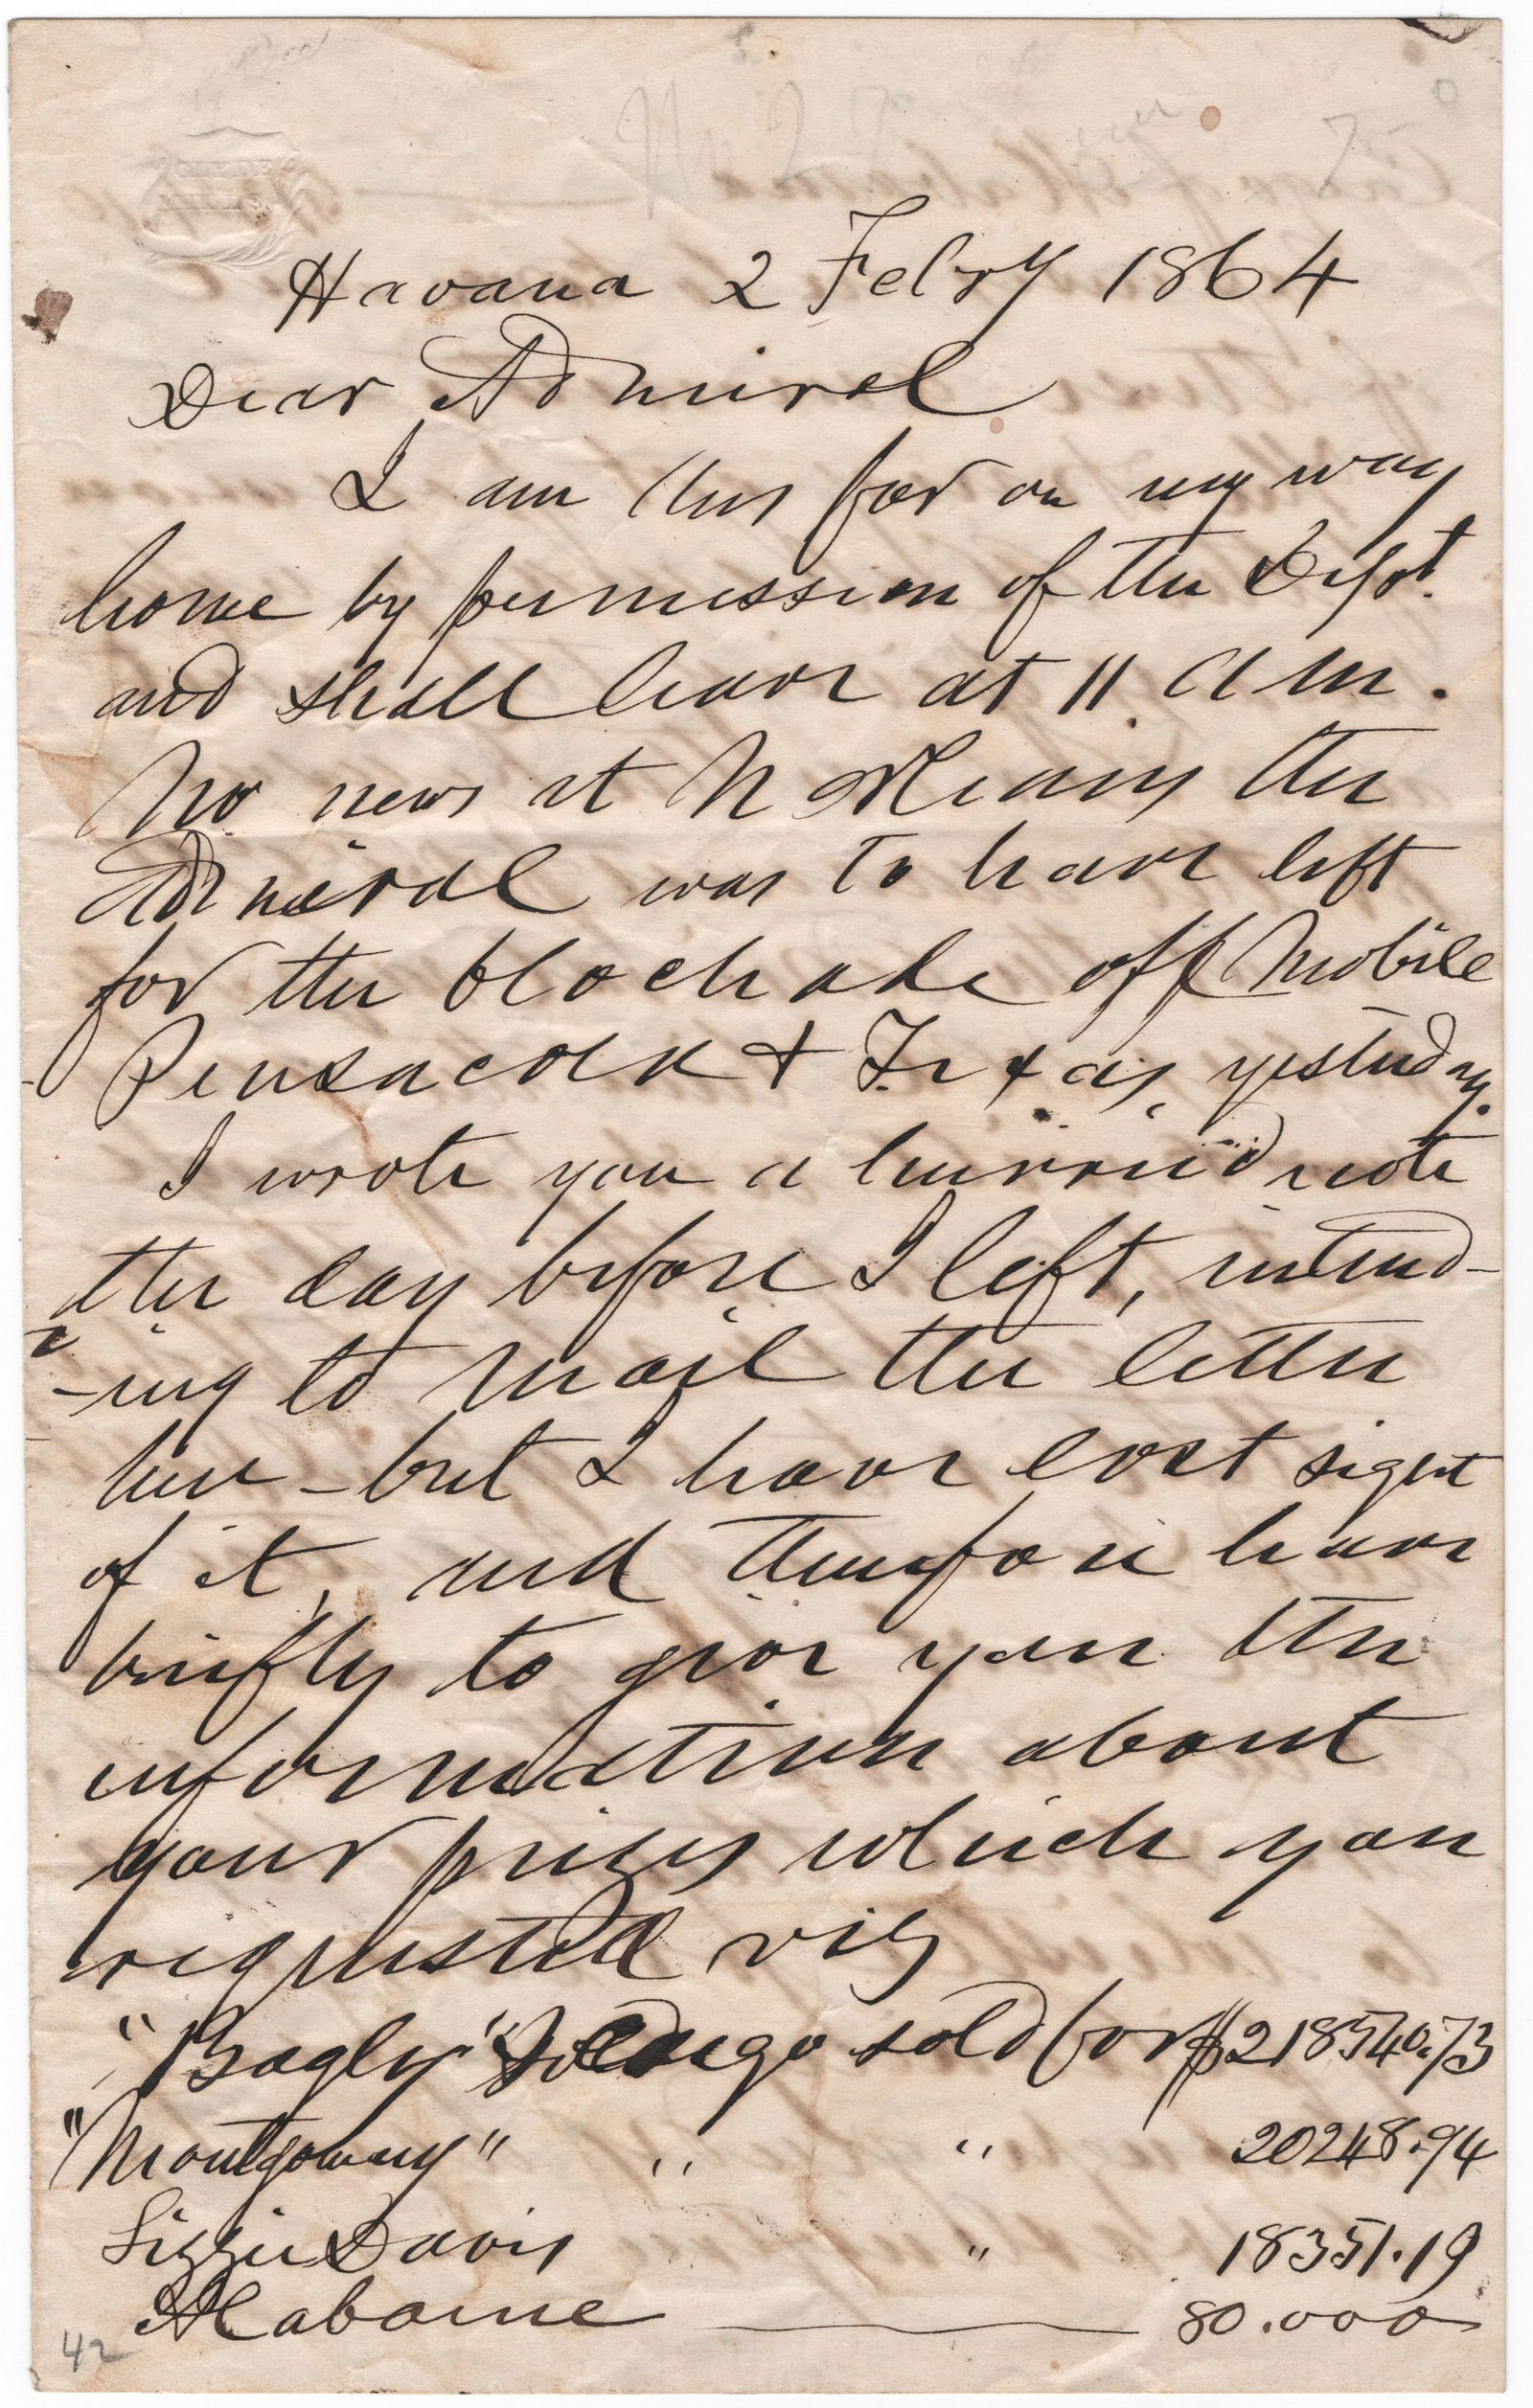 Havana 2 Febry 1864
Dear Admiral
I am thus far on my way
home by permission of the Dept.
and shall leave at 11 AM.
No news at N Orleans the
Admiral was to have left
for the blockade off Mobile
Pensacola & Texas, yesterday.
I wrote you a hurried note
the day before I left, intend-
-ing to mail the letter
here - but I have lost sight
of it, and therefore have
briefly to give you the
information about
your prizes which you
requested viz
"Bagley" & Cargo sold for $218540.73
"Montgomery" " " 20248.94
Lizzie Davis " 18351.19
Alabama — 80.000
42